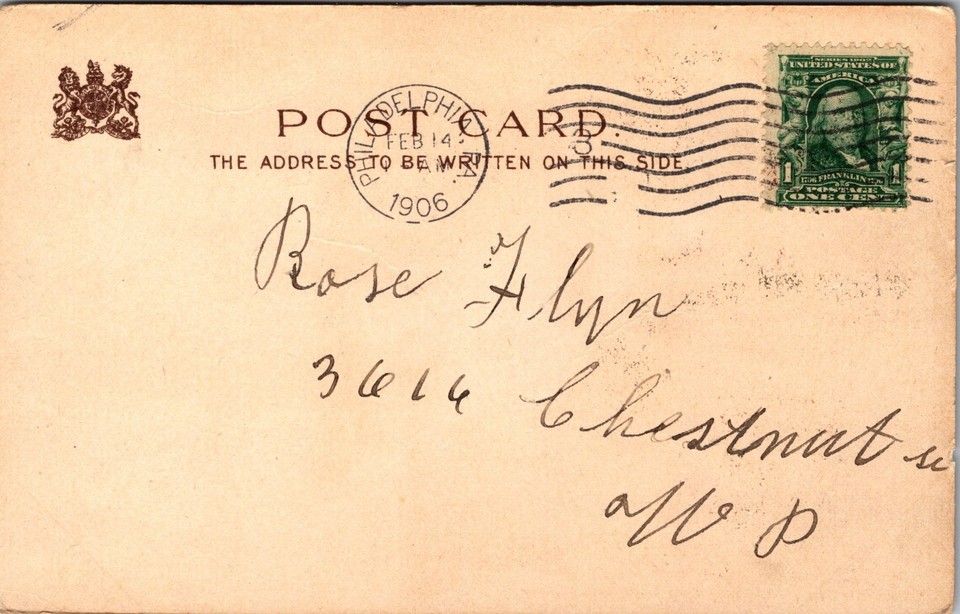 POST CARD.
THE ADDRESS TO BE WRITTEN ON THIS SIDE
PHILADELPHIA, PA.
FEB 14
AM
1906
3
SERIES 1902
UNITED STATES OF
AMERICA
FRANKLIN
1 POSTAGE 1
ONE CENT
Rose Flyn
3616 Chestnut
W P